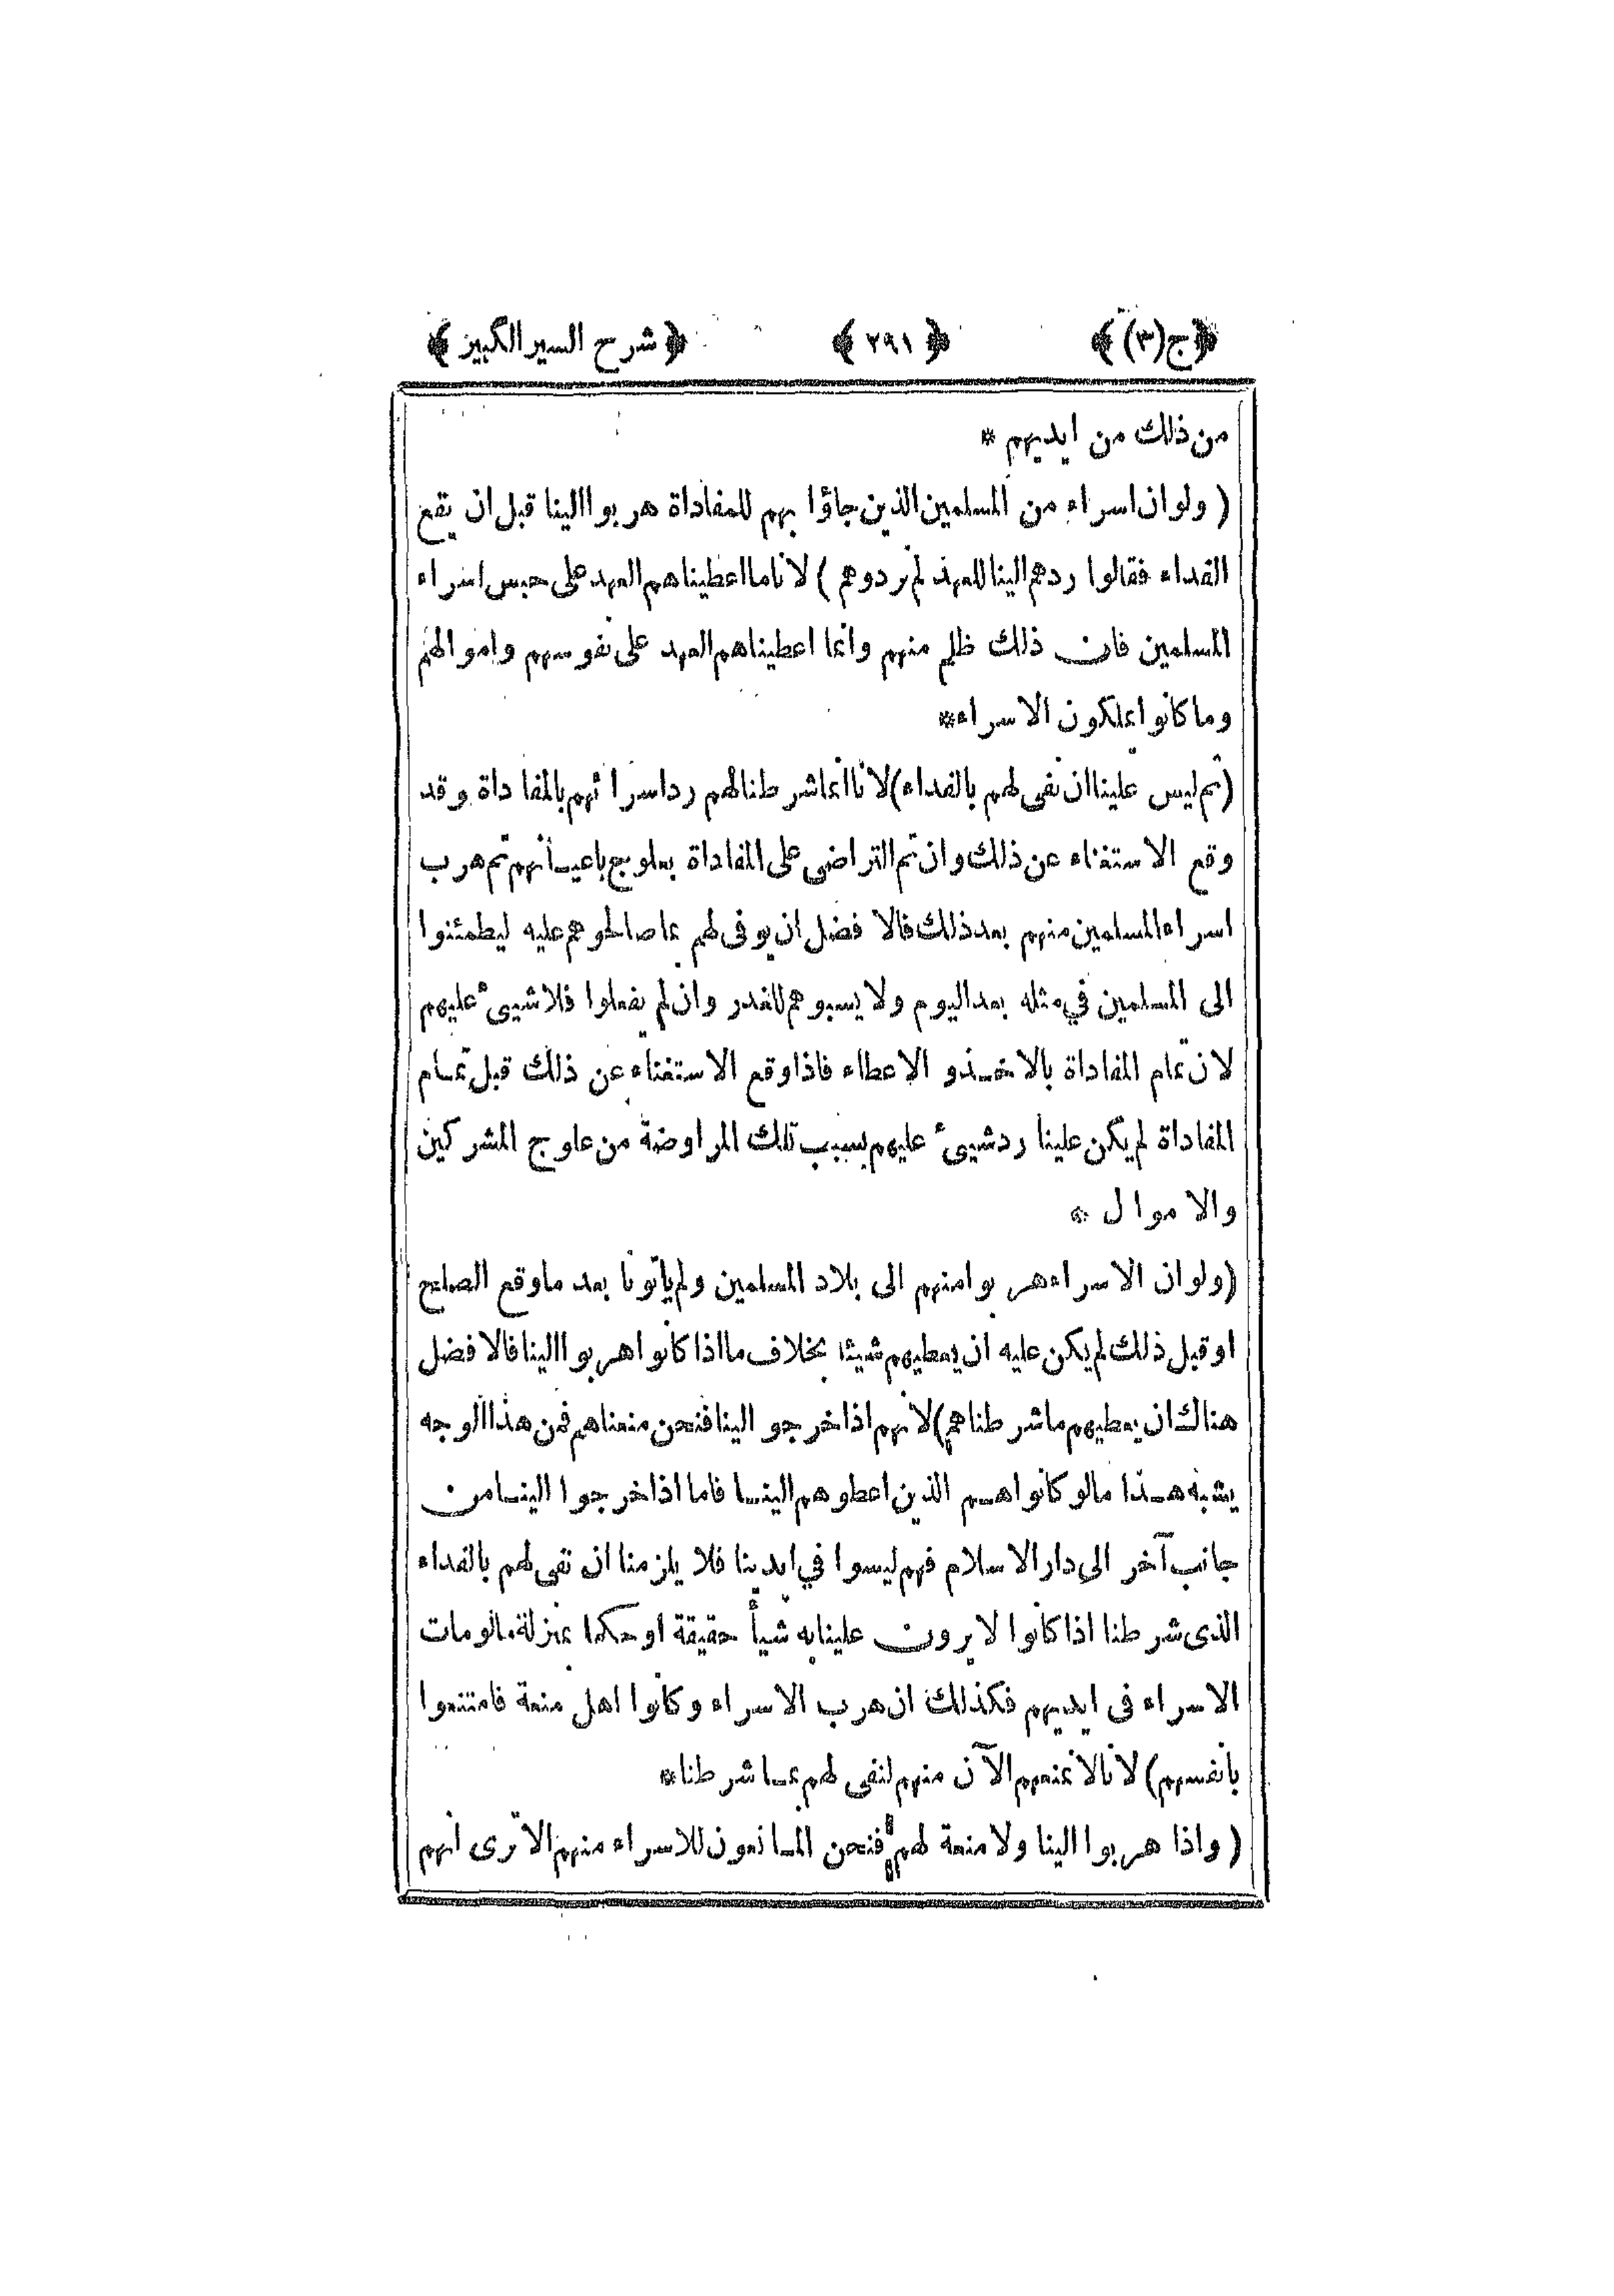 ﴿ ج (٣) ﴾ ﴿ ٢٩١ ﴾ ﴿ شرح السير الكبير ﴾
من ذلك من ايديهم *
( ولو ان اسراء من المسلمين الذين جاؤا بهم للمفاداة هربوا الينا قبل ان يقع
الفداء فقالوا ردهم الينا للعهد لم نردوهم ) لانا ما اعطيناهم العهد على حبس اسراء
المسلمين فان ذلك ظلم منهم وانما اعطيناهم العهد على نفوسهم واموالهم
وما كانوا يملكون الاسراء *
( ثم ليس علينا ان نفى لهم بالفداء ) لانا انما شرطنا لهم رد اسرائهم بالمفاداة وقد
وقع الاستغناء عن ذلك وان تم التراضى على المفاداة بعلوج باعيانهم ثم هرب
اسراء المسلمين منهم بعد ذلك فالافضل ان يوفى لهم بما صالحوهم عليه ليطمئنوا
الى المسلمين في مثله بعد اليوم ولا يسبوهم للغدر وان لم يفعلوا فلا شيئ عليهم
لان تمام المفاداة بالاخذ و الاعطاء فاذا وقع الاستغناء عن ذلك قبل تمام
المفاداة لم يكن علينا رد شيئ عليهم بسبب تلك المراوضة من علوج المشركين
والاموال *
( ولو ان الاسراء هربوا منهم الى بلاد المسلمين ولم يأتونا بعد ما وقع الصلح
او قبل ذلك لم يكن عليه ان يعطيهم شيئا بخلاف ما اذا كانوا هربوا الينا فالافضل
هناك ان يعطيهم ما شرطنا هم ) لانهم اذا خرجوا الينا فنحن منعناهم فمن هذا الوجه
يشبه هذا ما لو كانوا هم الذين اعطوهم الينا فاما اذا خرجوا الينا من
جانب آخر الى دار الاسلام فهم ليسوا في ايدينا فلا يلزمنا ان نفى لهم بالفداء
الذى شرطنا اذا كانوا لا يرون علينا به شيأ حقيقة او حكما بمنزلة ما لو مات
الاسراء فى ايديهم فكذلك ان هرب الاسراء وكانوا اهل منعة فامتنعوا
بانفسهم ) لانا لا نمنعهم الآن منهم لنفى لهم بما شرطنا *
( واذا هربوا الينا ولا منعة لهم فنحن المانعون للاسراء منهم الا ترى انهم